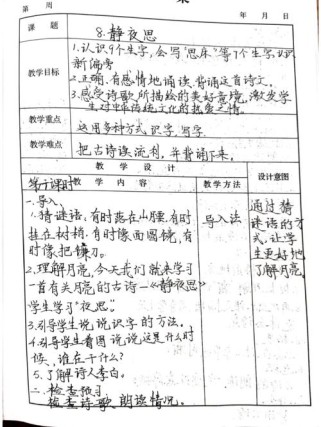 第 周
年 月 日
课 题
8.静夜思
教学目标
1.认识9个生字,会写“思床”等7个生字,认识
新偏旁
2.正确,有感情地诵读,背诵这首诗文。
3.感受诗歌所描绘的美好意境,激发学
生对中华传统文化的热爱之情。
教学重点
运用多种方式识字写字
教学难点
把古诗读流利,并背诵下来。
教 学 设 计
设计意图
第一课时
教 学 内 容
教学方法
一.导入
1.猜谜语:有时落在山腰,有时
挂在树梢,有时像面圆镜,有
时像把镰刀。
导入法
通过猜
谜语的方
式,让学
生更好地
了解月亮
2.理解月亮,今天我们就来学习
一首有关月亮的古诗—《静夜思》
学生学习“夜思”。
3.引导学生说说识字的方法。
4.引导学生看图说说这是什么时
候,谁在干什么?
5.了解诗人李白。
二.检查预习
检查诗歌朗读情况。